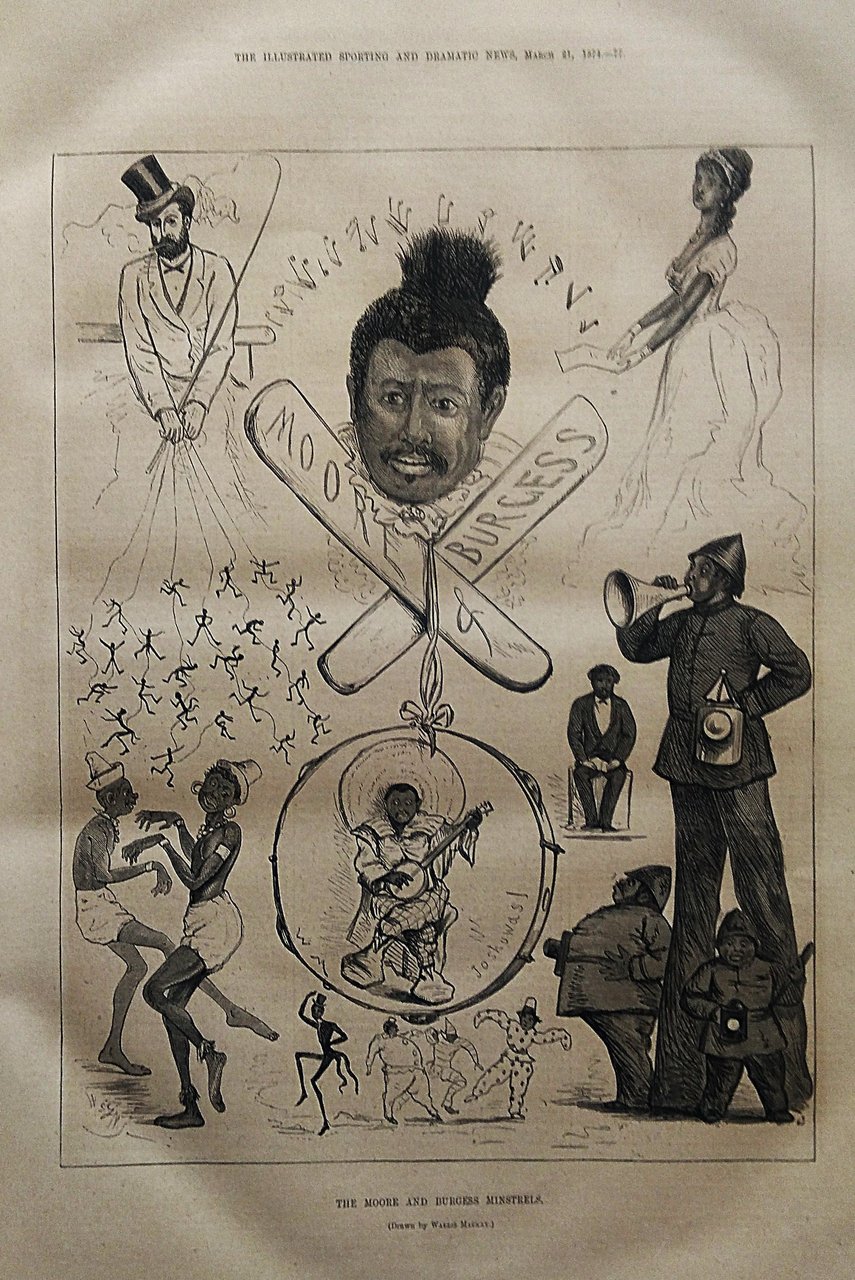 THE ILLUSTRATED SPORTING AND DRAMATIC NEWS, MARCH 21, 1874.—
MOOR
&
BURGESS
Joshuwas!
THE MOORE AND BURGESS MINSTRELS.
(Drawn by WALLIS MACKAY.)